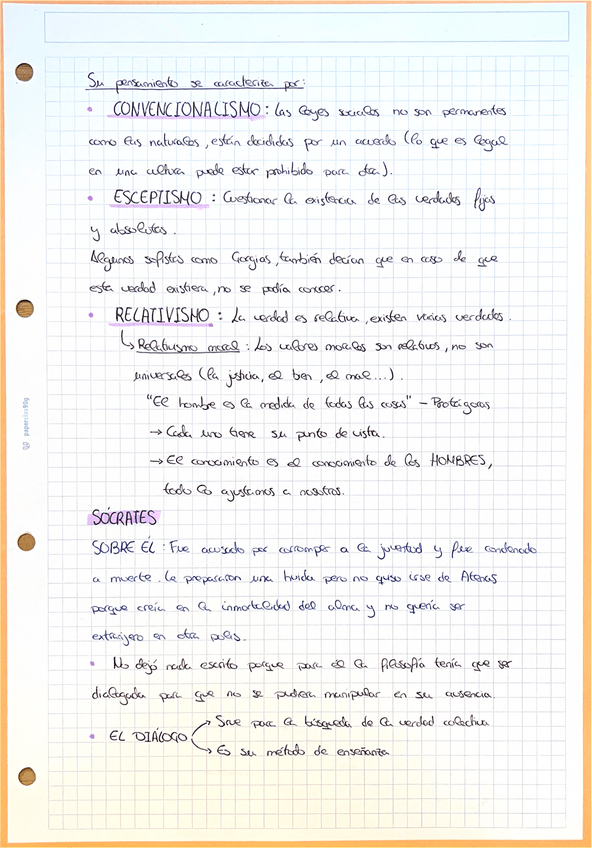 Su pensamiento se caracteriza por:
• CONVENCIONALISMO: Las leyes sociales no son permanentes
como las naturales, están decididas por un acuerdo (lo que es legal
en una cultura puede estar prohibido para otra).
• ESCEPTISMO: Cuestionar la existencia de las verdades fijas
y absolutas.
Algunos sofistas como Gorgias, también decían que en caso de que
esta verdad existiera, no se podía conocer.
• RELATIVISMO: La verdad es relativa, existen varias verdades.
↳ Relativismo moral: Los valores morales son relativos, no son
universales (la justicia, el bien, el mal...).
"El hombre es la medida de todas las cosas" - Protágoras
→ Cada uno tiene su punto de vista.
→ El conocimiento es el conocimiento de los HOMBRES,
todo lo ajustamos a nosotros.
SÓCRATES
SOBRE ÉL: Fue acusado por corromper a la juventud y fue condenado
a muerte. Le prepararon una huida pero no quiso irse de Atenas
porque creía en la inmortalidad del alma y no quería ser
extranjero en otra polis.
• No dejó nada escrito porque para él la filosofía tenía que ser
dialogada para que no se pudiera manipular en su ausencia.
• EL DIÁLOGO → Sirve para la búsqueda de la verdad colectiva
→ Es su método de enseñanza